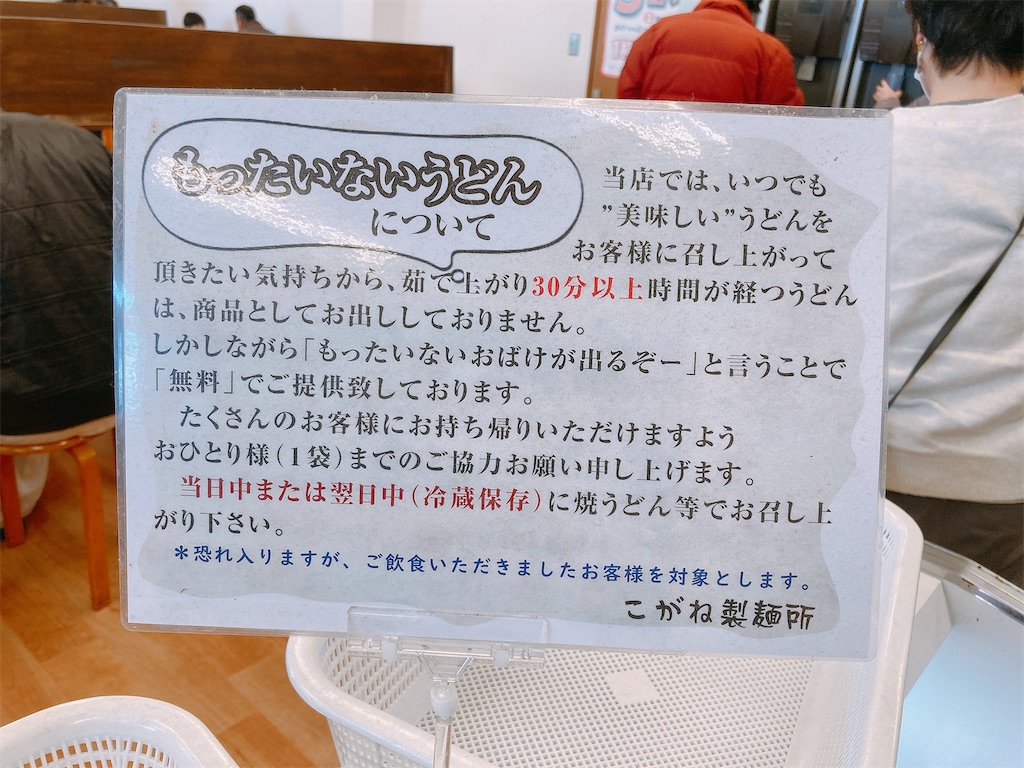 もったいないうどん
について
当店では、いつでも
”美味しい”うどんを
お客様に召し上がって
頂きたい気持ちから、茹で上がり30分以上時間が経つうどん
は、商品としてお出ししておりません。
しかしながら「もったいないおばけが出るぞー」と言うことで
「無料」でご提供致しております。
たくさんのお客様にお持ち帰りいただけますよう
おひとり様(1袋)までのご協力お願い申し上げます。
当日中または翌日中(冷蔵保存)に焼うどん等でお召し上
がり下さい。
＊恐れ入りますが、ご飲食いただきましたお客様を対象とします。
こがね製麺所